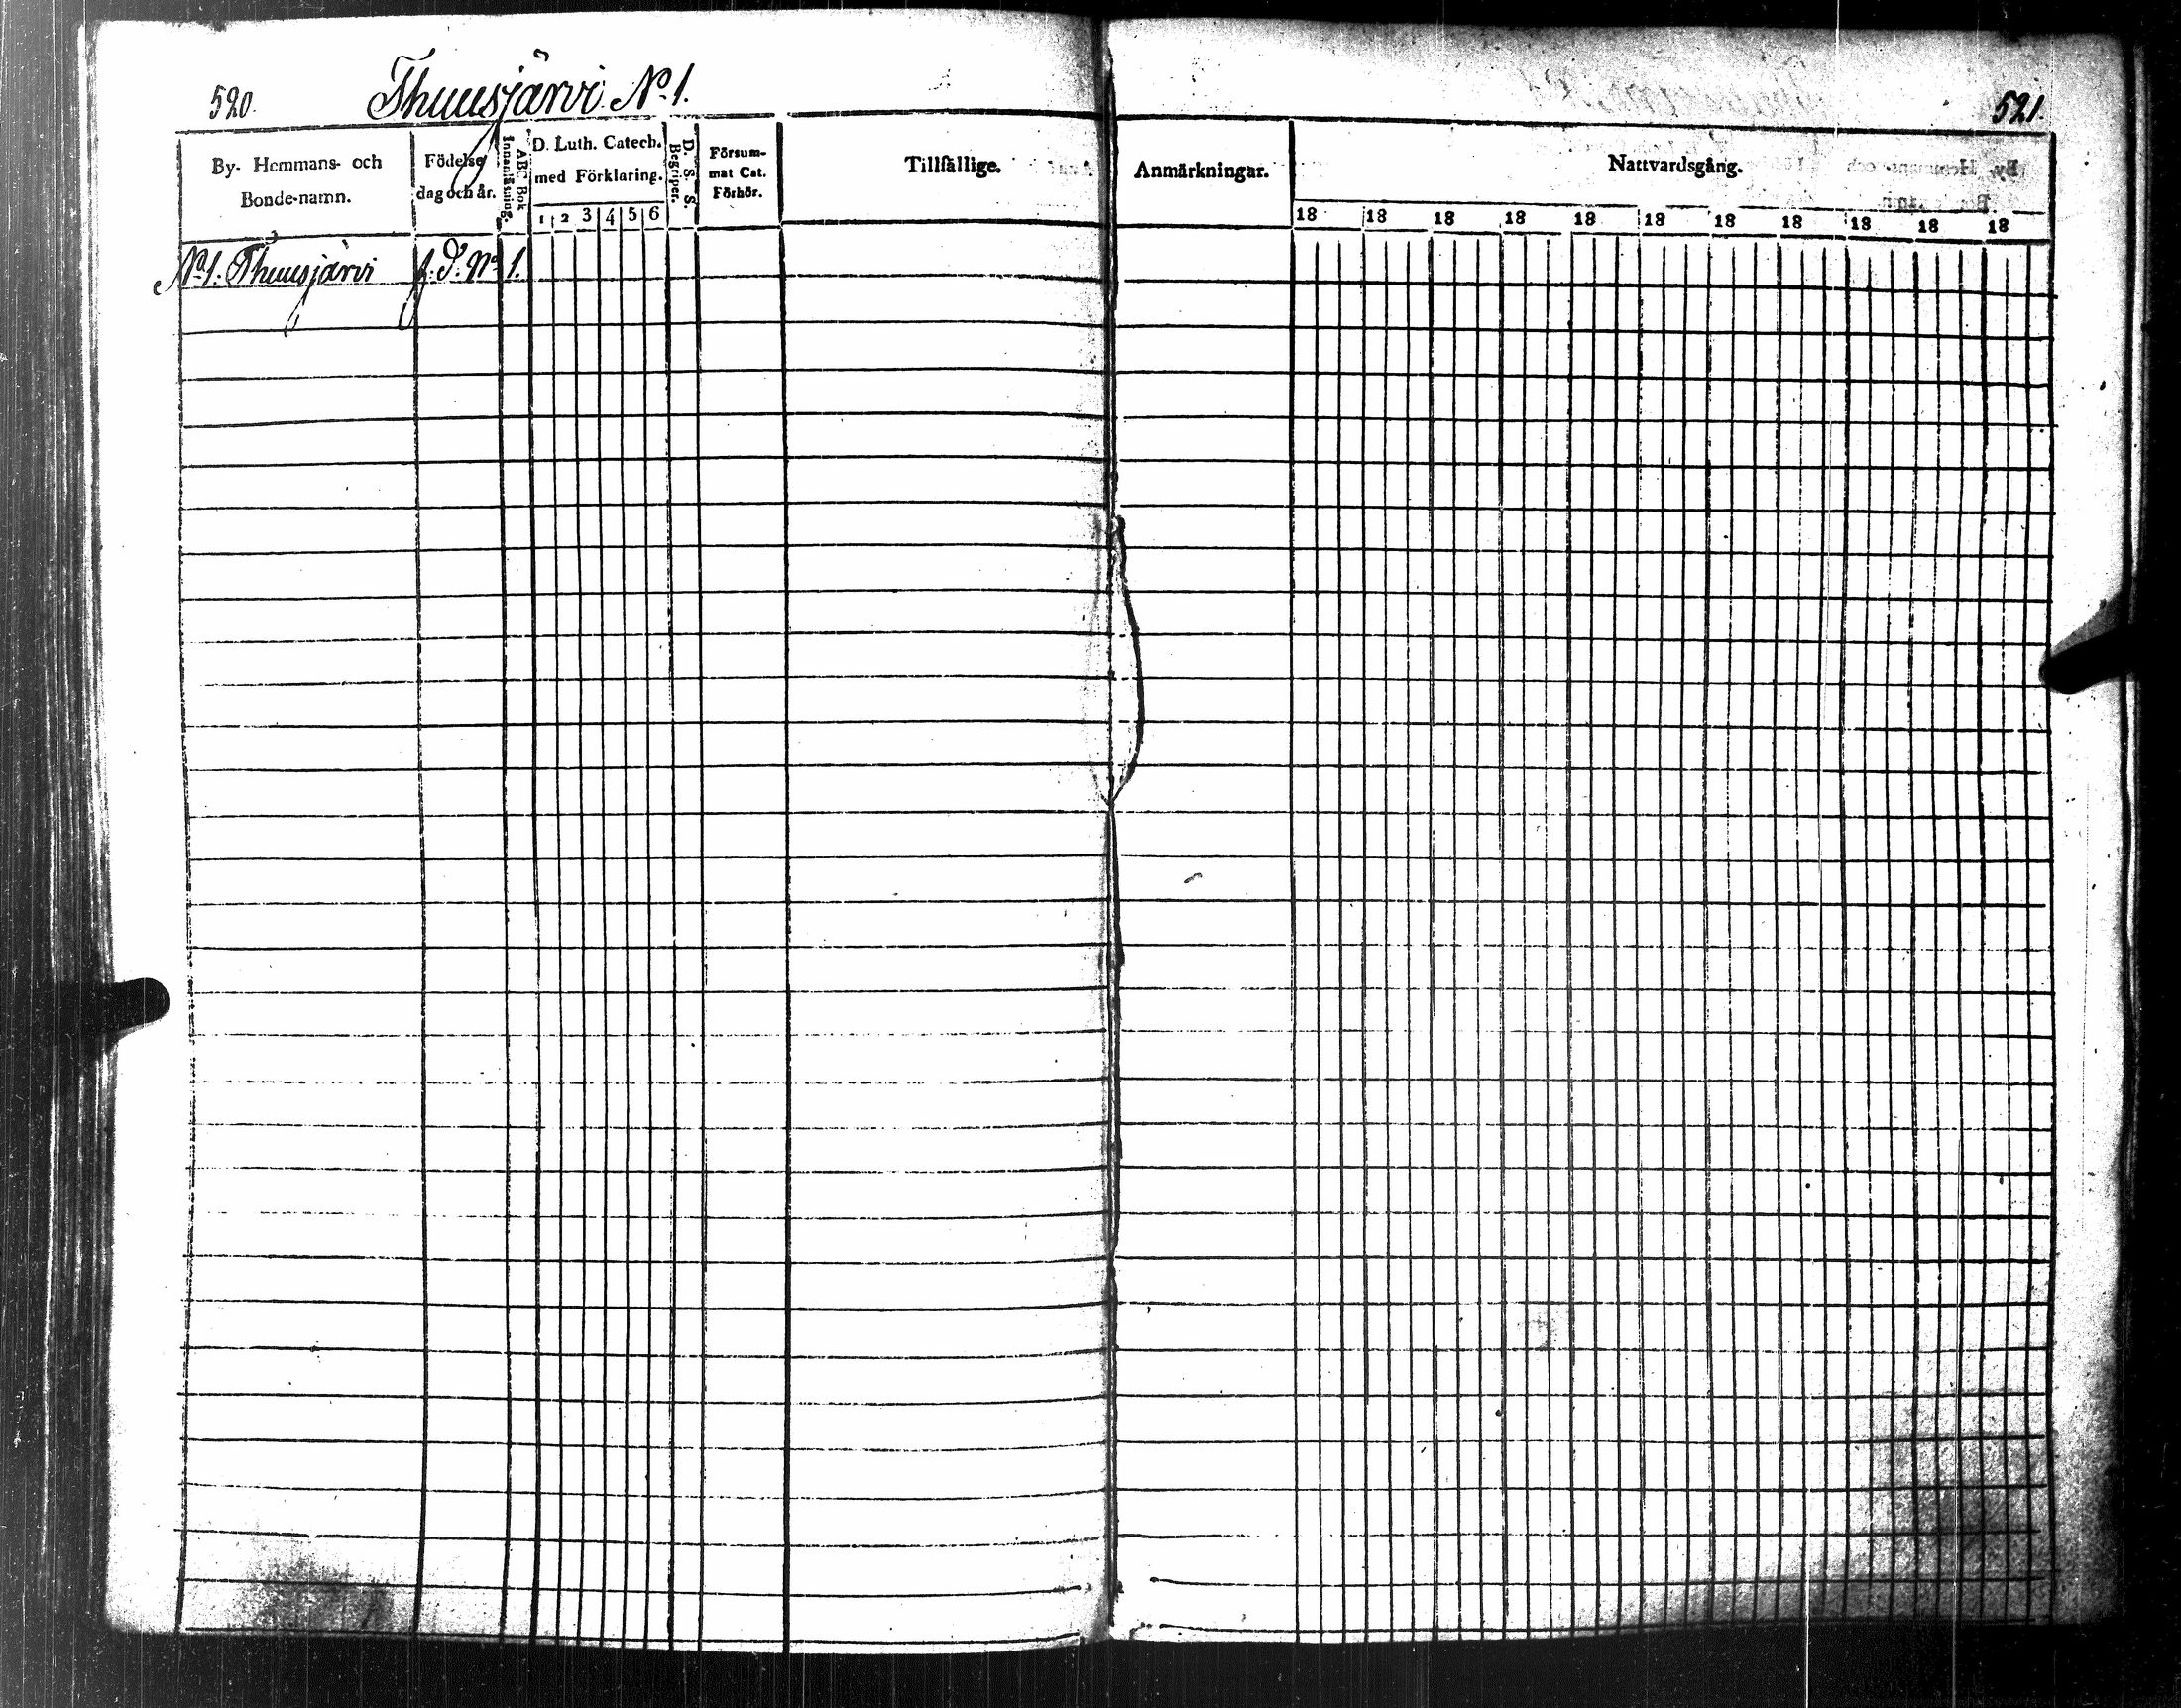 520.
Thuusjärvi No 1.
521.
By- Hemmans- och
Bonde-namn.
Födelse
dag och år.
ABC Bok
Innanläsning.
D. Luth. Catech.
med Förklaring.
1 2 3 4 5 6
D. S. S.
Begriper.
Försum-
mat Cat.
Förhör.
Tillfällige.
Anmärkningar.
Nattvardsgång.
18 18 18 18 18 18 18 18 18 18 18
No 1. Thuusjärvi f. d. No 1.